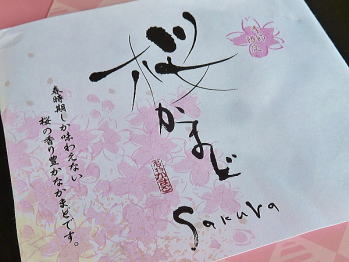 桜
かまど
Sakura
春時期しか味わえない
桜の香り豊かなかまどです。